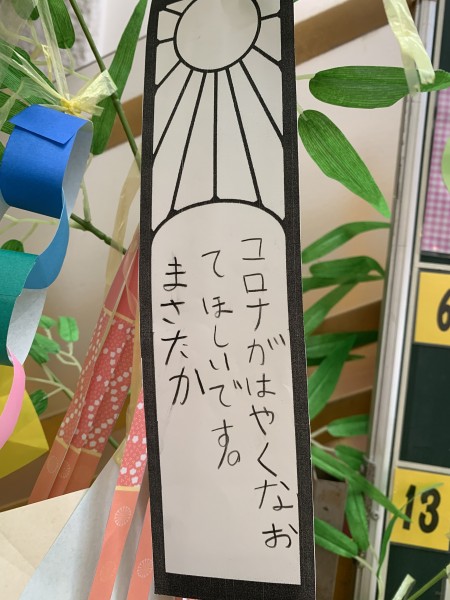 コロナがはやくなお
てほしいです。
まさたか
6
13